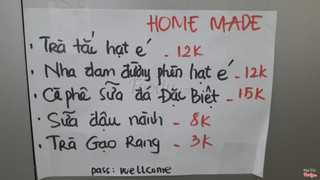 HOME MADE
• Trà tắc hạt é - 12K
• Nha đam đường phèn hạt é - 12K
• Cà phê sữa đá Đặc Biệt - 15K
• Sữa đậu nành - 8K
• Trà Gạo Rang - 3K
pass: wellcome